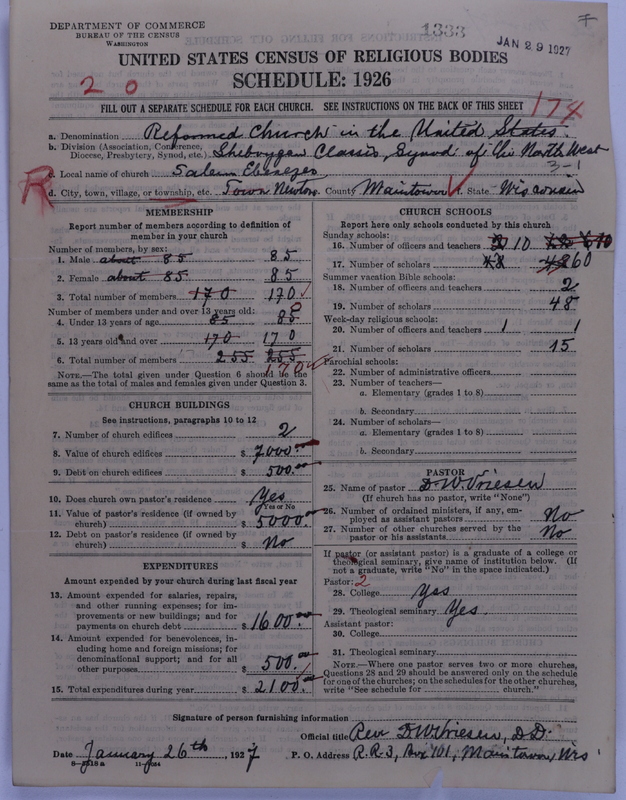 DEPARTMENT OF COMMERCE
BUREAU OF THE CENSUS
WASHINGTON
1333
JAN 29 1927
UNITED STATES CENSUS OF RELIGIOUS BODIES
SCHEDULE: 1926
2 0
FILL OUT A SEPARATE SCHEDULE FOR EACH CHURCH. SEE INSTRUCTIONS ON THE BACK OF THIS SHEET
174
a. Denomination Reformed Church in the United States.
b. Division (Association, Conference, Diocese, Presbytery, Synod, etc.) Sheboygan Classis, Synod of the North West
3-1
R
c. Local name of church Salem Ebenezer
d. City, town, village, or township, etc. Town Newton County Manitowoc f. State Wisconsin
MEMBERSHIP
Report number of members according to definition of
member in your church
Number of members, by sex:
1. Male about 85 85
2. Female about 85 85
3. Total number of members 170 170
Number of members under and over 13 years old:
4. Under 13 years of age 85 85 0
5. 13 years old and over 170 170
6. Total number of members 255 255
170
NOTE.—The total given under Question 6 should be the
same as the total of males and females given under Question 3.
CHURCH BUILDINGS
See instructions, paragraphs 10 to 12
7. Number of church edifices 2
8. Value of church edifices $ 7000.00
9. Debt on church edifices $ 500.00
10. Does church own pastor's residence Yes
Yes or No
11. Value of pastor's residence (if owned by
church) $ 5000.00
12. Debt on pastor's residence (if owned by
church) $ No
EXPENDITURES
Amount expended by your church during last fiscal year
13. Amount expended for salaries, repairs,
and other running expenses; for im-
provements or new buildings; and for
payments on church debt $ 1600.00
14. Amount expended for benevolences, in-
cluding home and foreign missions; for
denominational support; and for all
other purposes $ 500.00
15. Total expenditures during year $ 2100.00
CHURCH SCHOOLS
Report here only schools conducted by this church
Sunday schools:
16. Number of officers and teachers 10
17. Number of scholars 48 48 60
Summer vacation Bible schools:
18. Number of officers and teachers 2
19. Number of scholars 48
Week-day religious schools:
20. Number of officers and teachers 1 1
21. Number of scholars 15
Parochial schools:
22. Number of administrative officers
23. Number of teachers—
a. Elementary (grades 1 to 8)
b. Secondary
24. Number of scholars—
a. Elementary (grades 1 to 8)
b. Secondary
PASTOR
25. Name of pastor D.W. Vriesen
(If church has no pastor, write "None")
26. Number of ordained ministers, if any, em-
ployed as assistant pastors No
27. Number of other churches served by the
pastor or his assistants No
If pastor (or assistant pastor) is a graduate of a college or
theological seminary, give name of institution below. (If
not a graduate, write "No" in the space indicated.)
Pastor: 2
28. College Yes
29. Theological seminary Yes.
Assistant pastor:
30. College
31. Theological seminary
NOTE.—Where one pastor serves two or more churches,
Questions 28 and 29 should be answered only on the schedule
for one of the churches; on the schedules for the other churches,
write "See schedule for church."
Signature of person furnishing information
Official title Rev D.W. Vriesen, D.D.
Date January 26th, 1927
P. O. Address R.R. 3, Box 101, Manitowoc, Wis